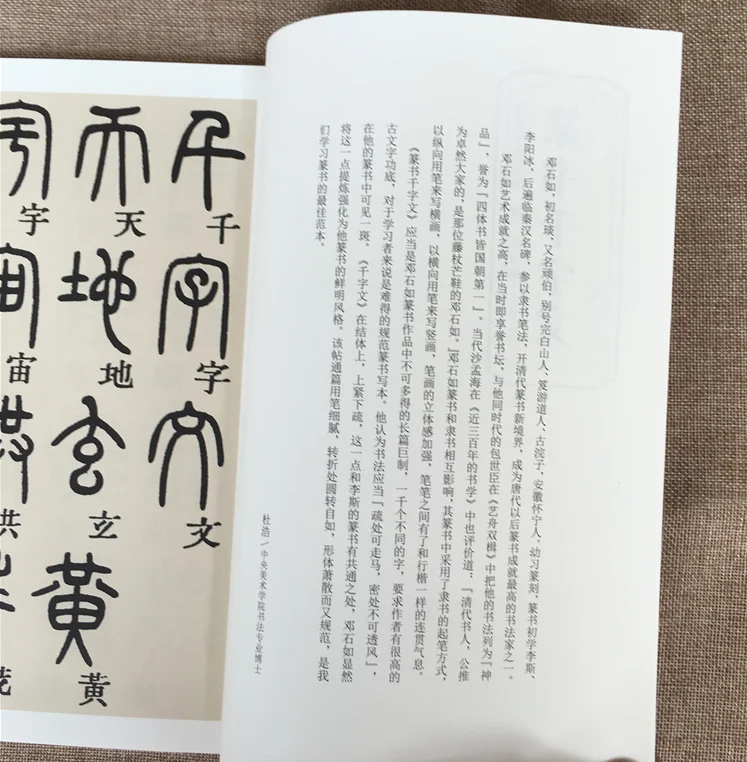 邓石如,初名琰,又名顽伯,别号完白山人、笈游道人、古浣子,安徽怀宁人。幼习篆刻,篆书初学李斯、
李阳冰,后遍临秦汉名碑,参以隶书笔法,开清代篆书新境界,成为唐代以后篆书成就最高的书法家之一。
邓石如艺术成就之高,在当时即享誉书坛,与他同时代的包世臣在《艺舟双楫》中把他的书法列为「神
品」,誉为「四体书皆国朝第一」。当代沙孟海在《近三百年的书学》中也评价道:「清代书人,公推
为卓然大家的,是那位藤杖芒鞋的邓石如。」邓石如篆书和隶书相互影响,其篆书中采用了隶书的起笔方式,
以纵向用笔来写横画,以横向用笔来写竖画,笔画的立体感加强,笔笔之间有了和行楷一样的连贯气息。
《篆书千字文》应当是邓石如篆书作品中不可多得的长篇巨制,一千个不同的字,要求作者有很高的
古文字功底,对于学习者来说是难得的规范篆书写本。他认为书法应当「疏处可走马,密处不可透风」,
在他的篆书中可见一斑。《千字文》在结体上,上紧下疏,这一点和李斯的篆书有共通之处,邓石如显然
将这一点提炼强化为他篆书的鲜明风格。该帖通篇用笔细腻,转折处圆转自如,形体萧散而又规范,是我
们学习篆书的最佳范本。
杜浩/中央美术学院书法专业博士
千千字字文文
天天地地玄玄黄黄
宇宇宙宙洪洪